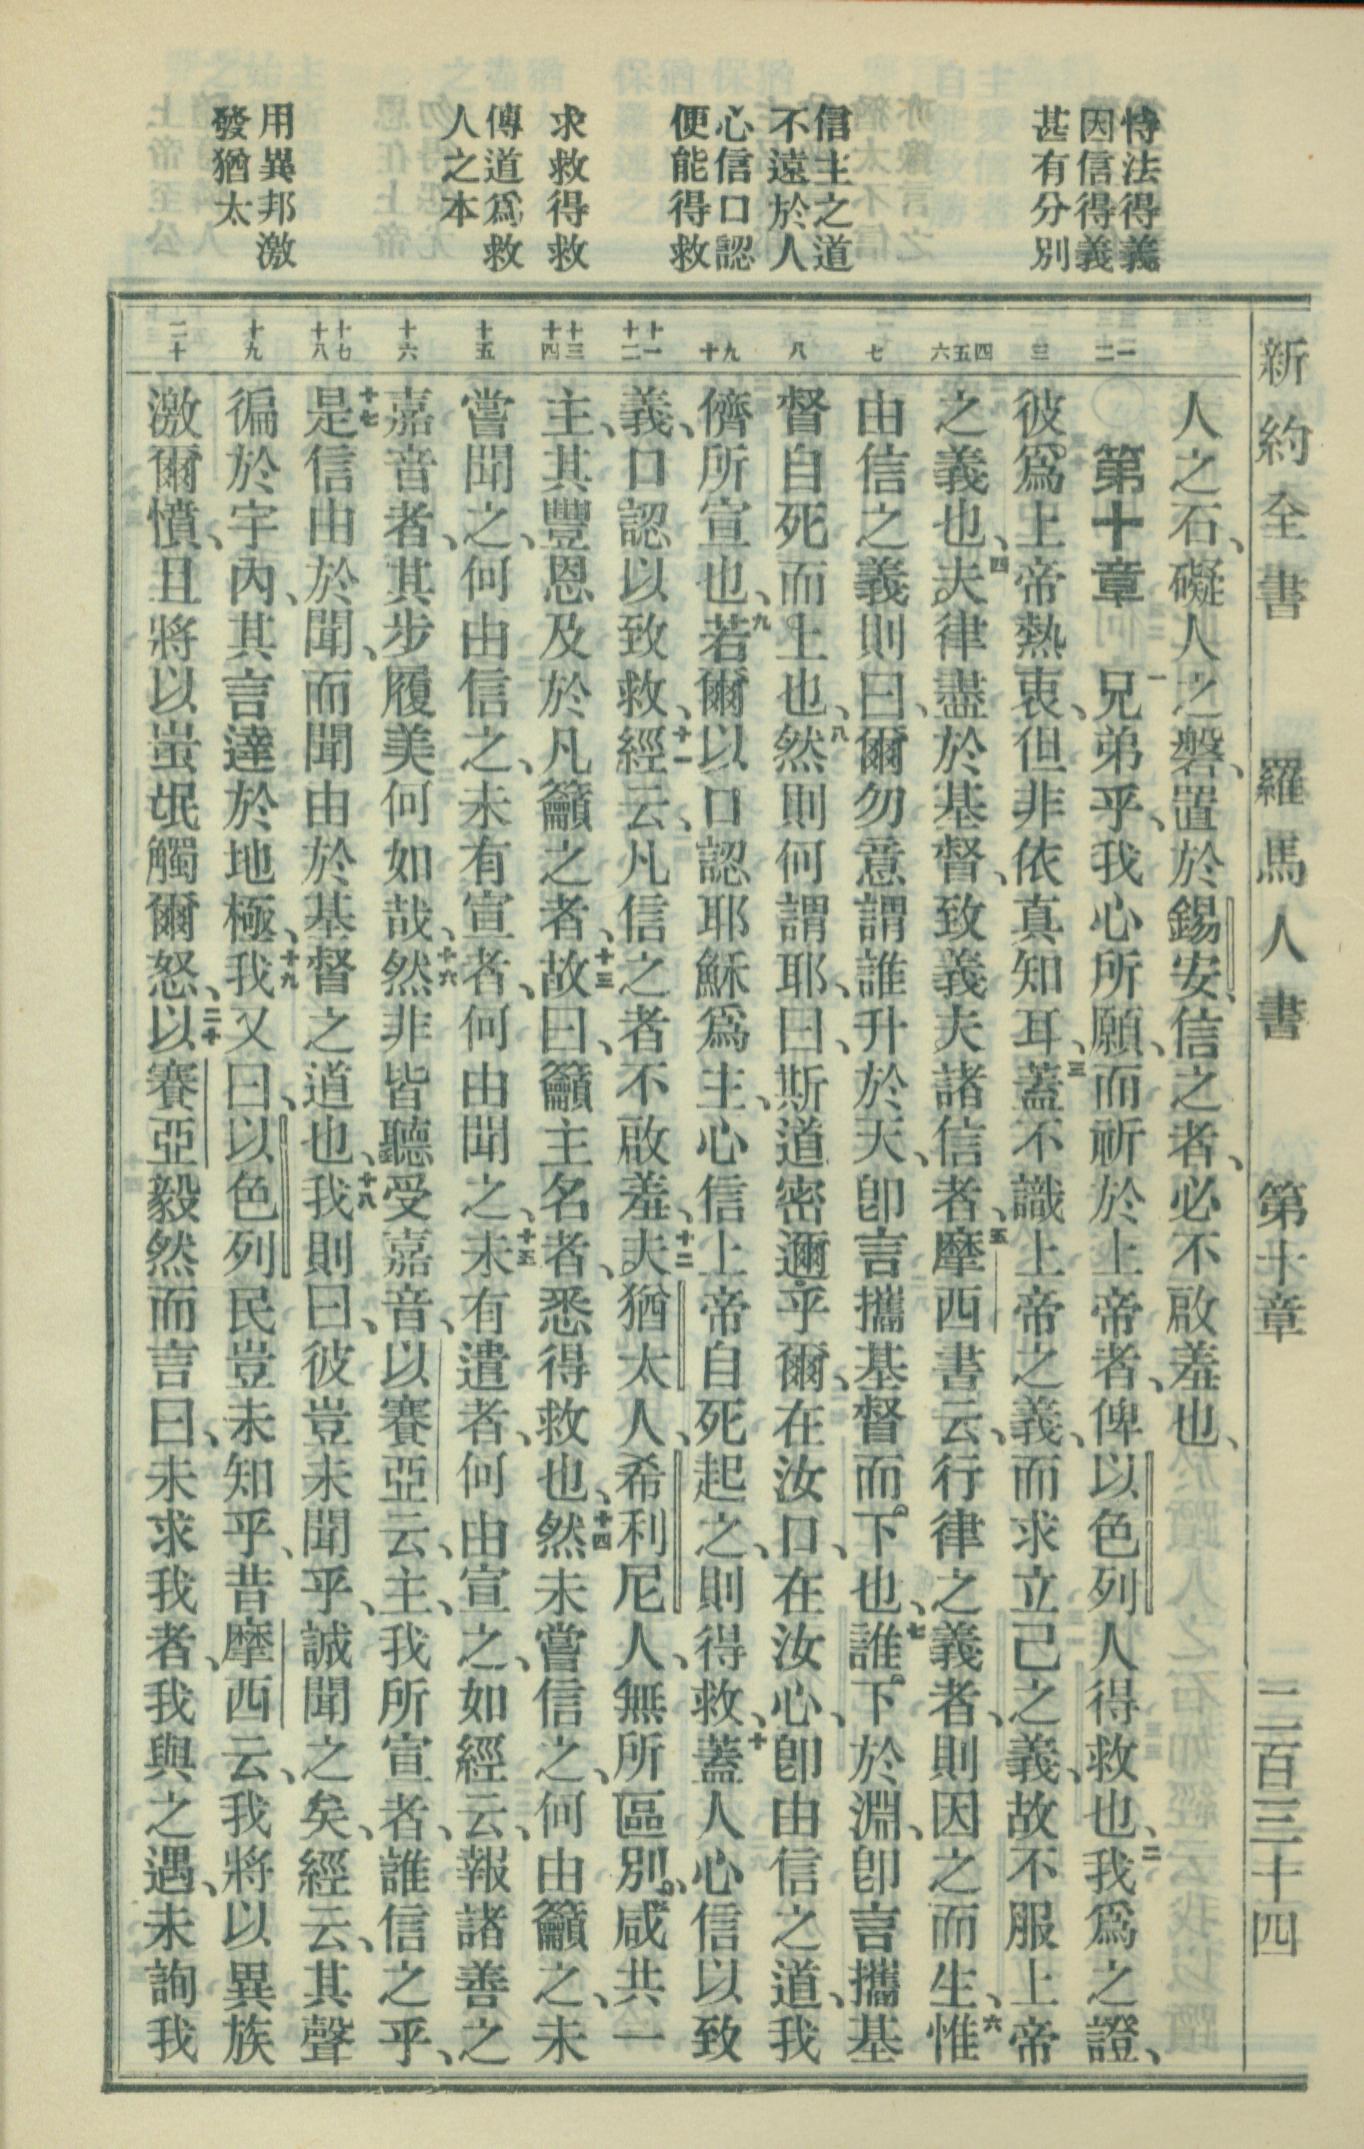 新約全書　羅馬人書　第十章　二百三十四
恃法得義
因信得義
甚有分別
信主之道
不遠於人
心信口認
便能得救
求救得救
傳道爲救
人之本
用異邦激
發猶太
一二
三
四五六
七
八
九十
十一十二
十三十四
十五
十六
十七十八
十九
二十
人之石、礙人之磐、置於錫安、信之者、必不啟羞也、
第十章　一兄弟乎、我心所願、而祈於上帝者、俾以色列人得救也、二我爲之證、
彼爲上帝熱衷、但非依真知耳、三蓋不識上帝之義、而求立己之義、故不服上帝
之義也、四夫律盡於基督、致義夫諸信者、五摩西書云、行律之義者、則因之而生、六惟
由信之義則曰、爾勿意謂誰升於天、卽言攜基督而下也、七誰下於淵、卽言攜基
督自死而上也、八然則何謂耶、曰、斯道密邇乎爾、在汝口、在汝心、卽由信之道、我
儕所宣也、九若爾以口認耶穌爲主、心信上帝自死起之、則得救、十蓋人心信以致
義、口認以致救、十一經云、凡信之者不啟羞、十二夫猶太人、希利尼人、無所區別、咸共一
主、其豐恩及於凡籲之者、十三故曰、籲主名者、悉得救也、十四然未嘗信之、何由籲之、未
嘗聞之、何由信之、未有宣者、何由聞之、十五未有遣者、何由宣之、如經云、報諸善之
嘉音者、其步履美何如哉、十六然非皆聽受嘉音、以賽亞云、主、我所宣者、誰信之乎、
十七是信由於聞、而聞由於基督之道也、十八我則曰、彼豈未聞乎、誠聞之矣、經云、其聲
徧於宇內、其言達於地極、十九我又曰、以色列民豈未知乎、昔摩西云、我將以異族
激爾憤、且將以蚩氓觸爾怒、二十以賽亞毅然而言曰、未求我者、我與之遇、未詢我